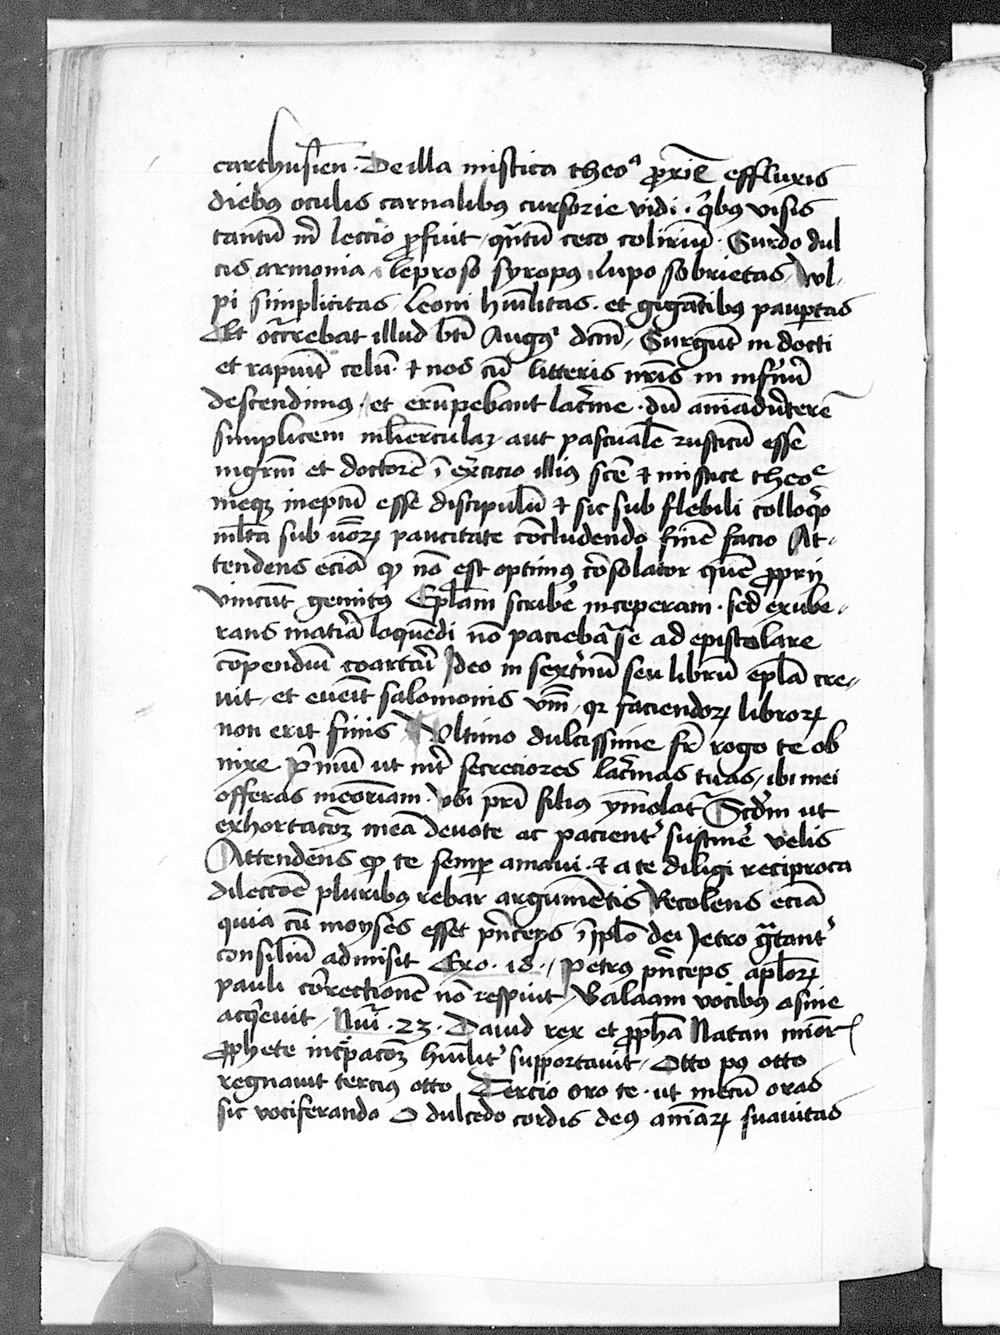 carthusien̄. De illa mistica theoᵃ ꝓxīe effluxis
diebꝰ oculis carnalibꝰ cursorie vidi. q̇bꝰ visis
tantū m̄ lectio ꝓfuit, q̄ntū ceco coliriū. Surdo dul
cis armonia, leproso syropꝰ, lupo sobrietas, vul-
pi simplicitas, Leoni hūilitas. et gigātibꝰ pauꝑtas
Et occ̄rrebat illud bt̄i Augꝰ dcm̄, Surgūt in docti
et rapiūt celū. ⁊ nos cū litteris nr̄is in infernū
descendimus, et erūpebant lac̄rme. dū aīaduͤterē
simplicem mlīerculaꝫ aut pascualē rusticū esse
mgrm̄ et doctorē ī exc̄icio illiꝰ sc̄e ⁊ mistice theoᵉ
meqꝫ ineptū esse discipulū ⁊ sic sub flebili colloq̇o
ml̄ta sub v̄boꝝ paucitate cōcludendo finē facio At-
tendens eciā ꝙ nō est optimꝰ cōsolator quē ꝓprij
vincūt gemitꝰ Epl̄am scribe᷑ inceperam. sed exube-
rans mat̄ia loquēdi nō paciebat᷑ se ad epistolare
cōpendiū coartari Ideo in sext̄nū seu librū epl̄a cre-
uit, et eueīt salomonis v̄m̄, qꝛ faciendoꝝ libroꝝ
non erit finis Vltimo dulcissime fr̄ rogo te ob
nixe p̄mū ut int̄ secreciores lac̄mas tuas, ibi mei
offeras meoriam. vbi pr̄i filius ymolat᷑ Scd̄m ut
exhortacōꝫ meā deuote ac pacient᷑ sustine᷑ velis
Attendens ꝙ te semꝑ amaui. ⁊ a te diligi reciproca
dilectōe pluribꝰ rebar argumētis Recolens eciā
quia cū moyses esset p̄nceps ī pplō dei Jetro g̃tant᷑
consiliū admisit Exo. 18., Petrus p̄nceps apl̄oꝝ
pauli cōrrectionē nō respuit, Balaam vocibꝰ asine
acq̇euit, Nūi. 23. Dauid rex et ꝓpha Natan mīor᷑
ꝓphete incp̄acōꝫ hūilit᷑ supportauit, Otto pꝰ otto
regnauit terciꝰ otto Tercio oro te. ut mecū oras
sic vociferando O dulcedo cordis deꝰ aīaꝝ suauitas